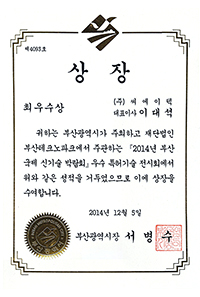 제4093호
상 장
최우수상
(주) 씨에이텍
대표이사 이대석
귀하는 부산광역시가 주최하고 재단법인
부산테크노파크에서 주관하는 「2014년 부산
국제 신기술 박람회」 우수 특허기술 전시회에서
위와 같은 성적을 거두었으므로 이에 상장을
수여합니다.
2014년 12월 5일
부산광역시장 서 병 수